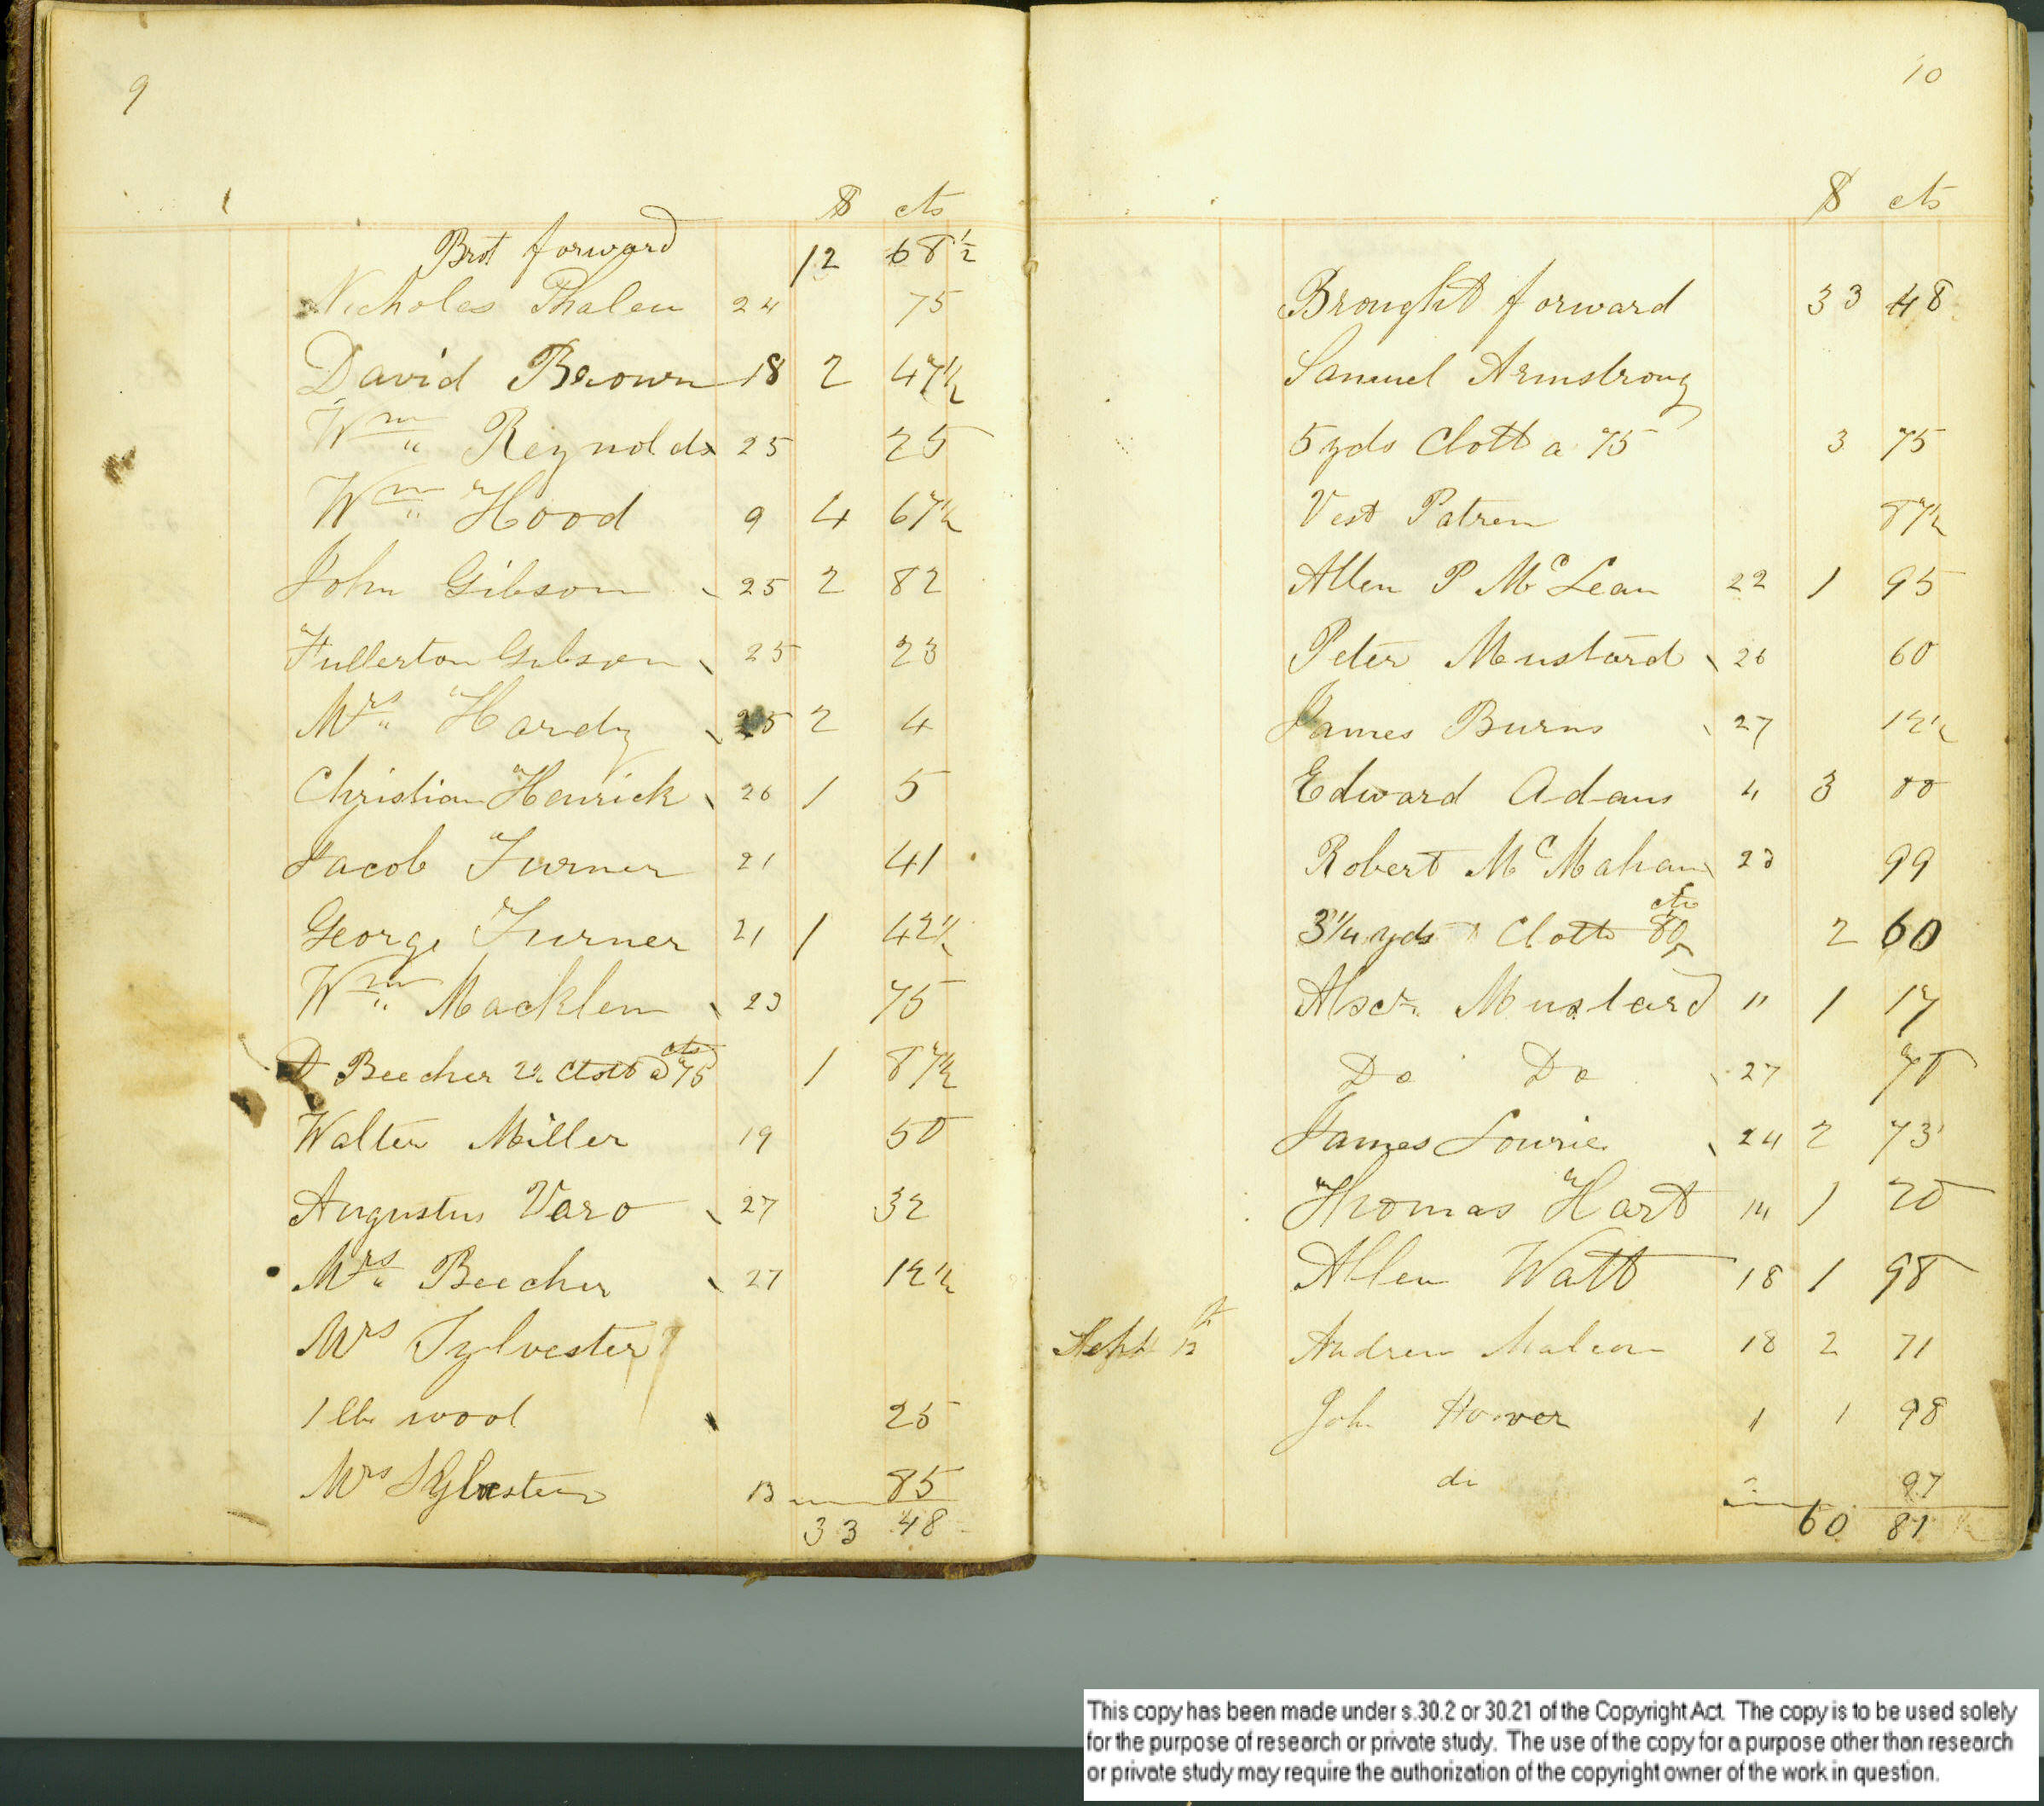 9
$ cts
Brot forward 12 68½
Nicholas Phalen 24 75
David Brown 18 2 47½
Wm Reynolds 25 25
Wm Hood 9 4 67½
John Gibson 25 2 82
Fullerton Gibson 25 23
Mrs Hardy 25 2 4
Christian Henrick 26 1 5
Jacob Turner 21 41
George Turner 21 1 42½
Wm Macklem 23 75
D Beecher 2½ Cloth a 75 cts 1 87½
Walter Miller 19 50
Augustus Varo 27 32
Mrs Beecher 27 12½
Mrs Sylvester
1 lb wool 25
Mrs Sylvester 13 85
33 48
10
$ cts
Brought forward 33 48
Samuel Armstrong
5 yds Cloth a 75 3 75
Vest Patren 87½
Allen P McLean 22 1 95
Peter Mustard 26 60
James Burns 27 12½
Edward Adams 4 3 00
Robert McMahan 23 99
3¼ yds Cloth 80 cts 2 60
Alexr Mustard 11 1 17
Do Do 27 70
James Lowrie 24 2 73
Thomas Hart 14 1 20
Allen Watt 18 1 98
Sept 12 Andrew Malcom 18 2 71
John Hoover 1 1 98
do 97
60 81
This copy has been made under s.30.2 or 30.21 of the Copyright Act. The copy is to be used solely
for the purpose of research or private study. The use of the copy for a purpose other than research
or private study may require the authorization of the copyright owner of the work in question.